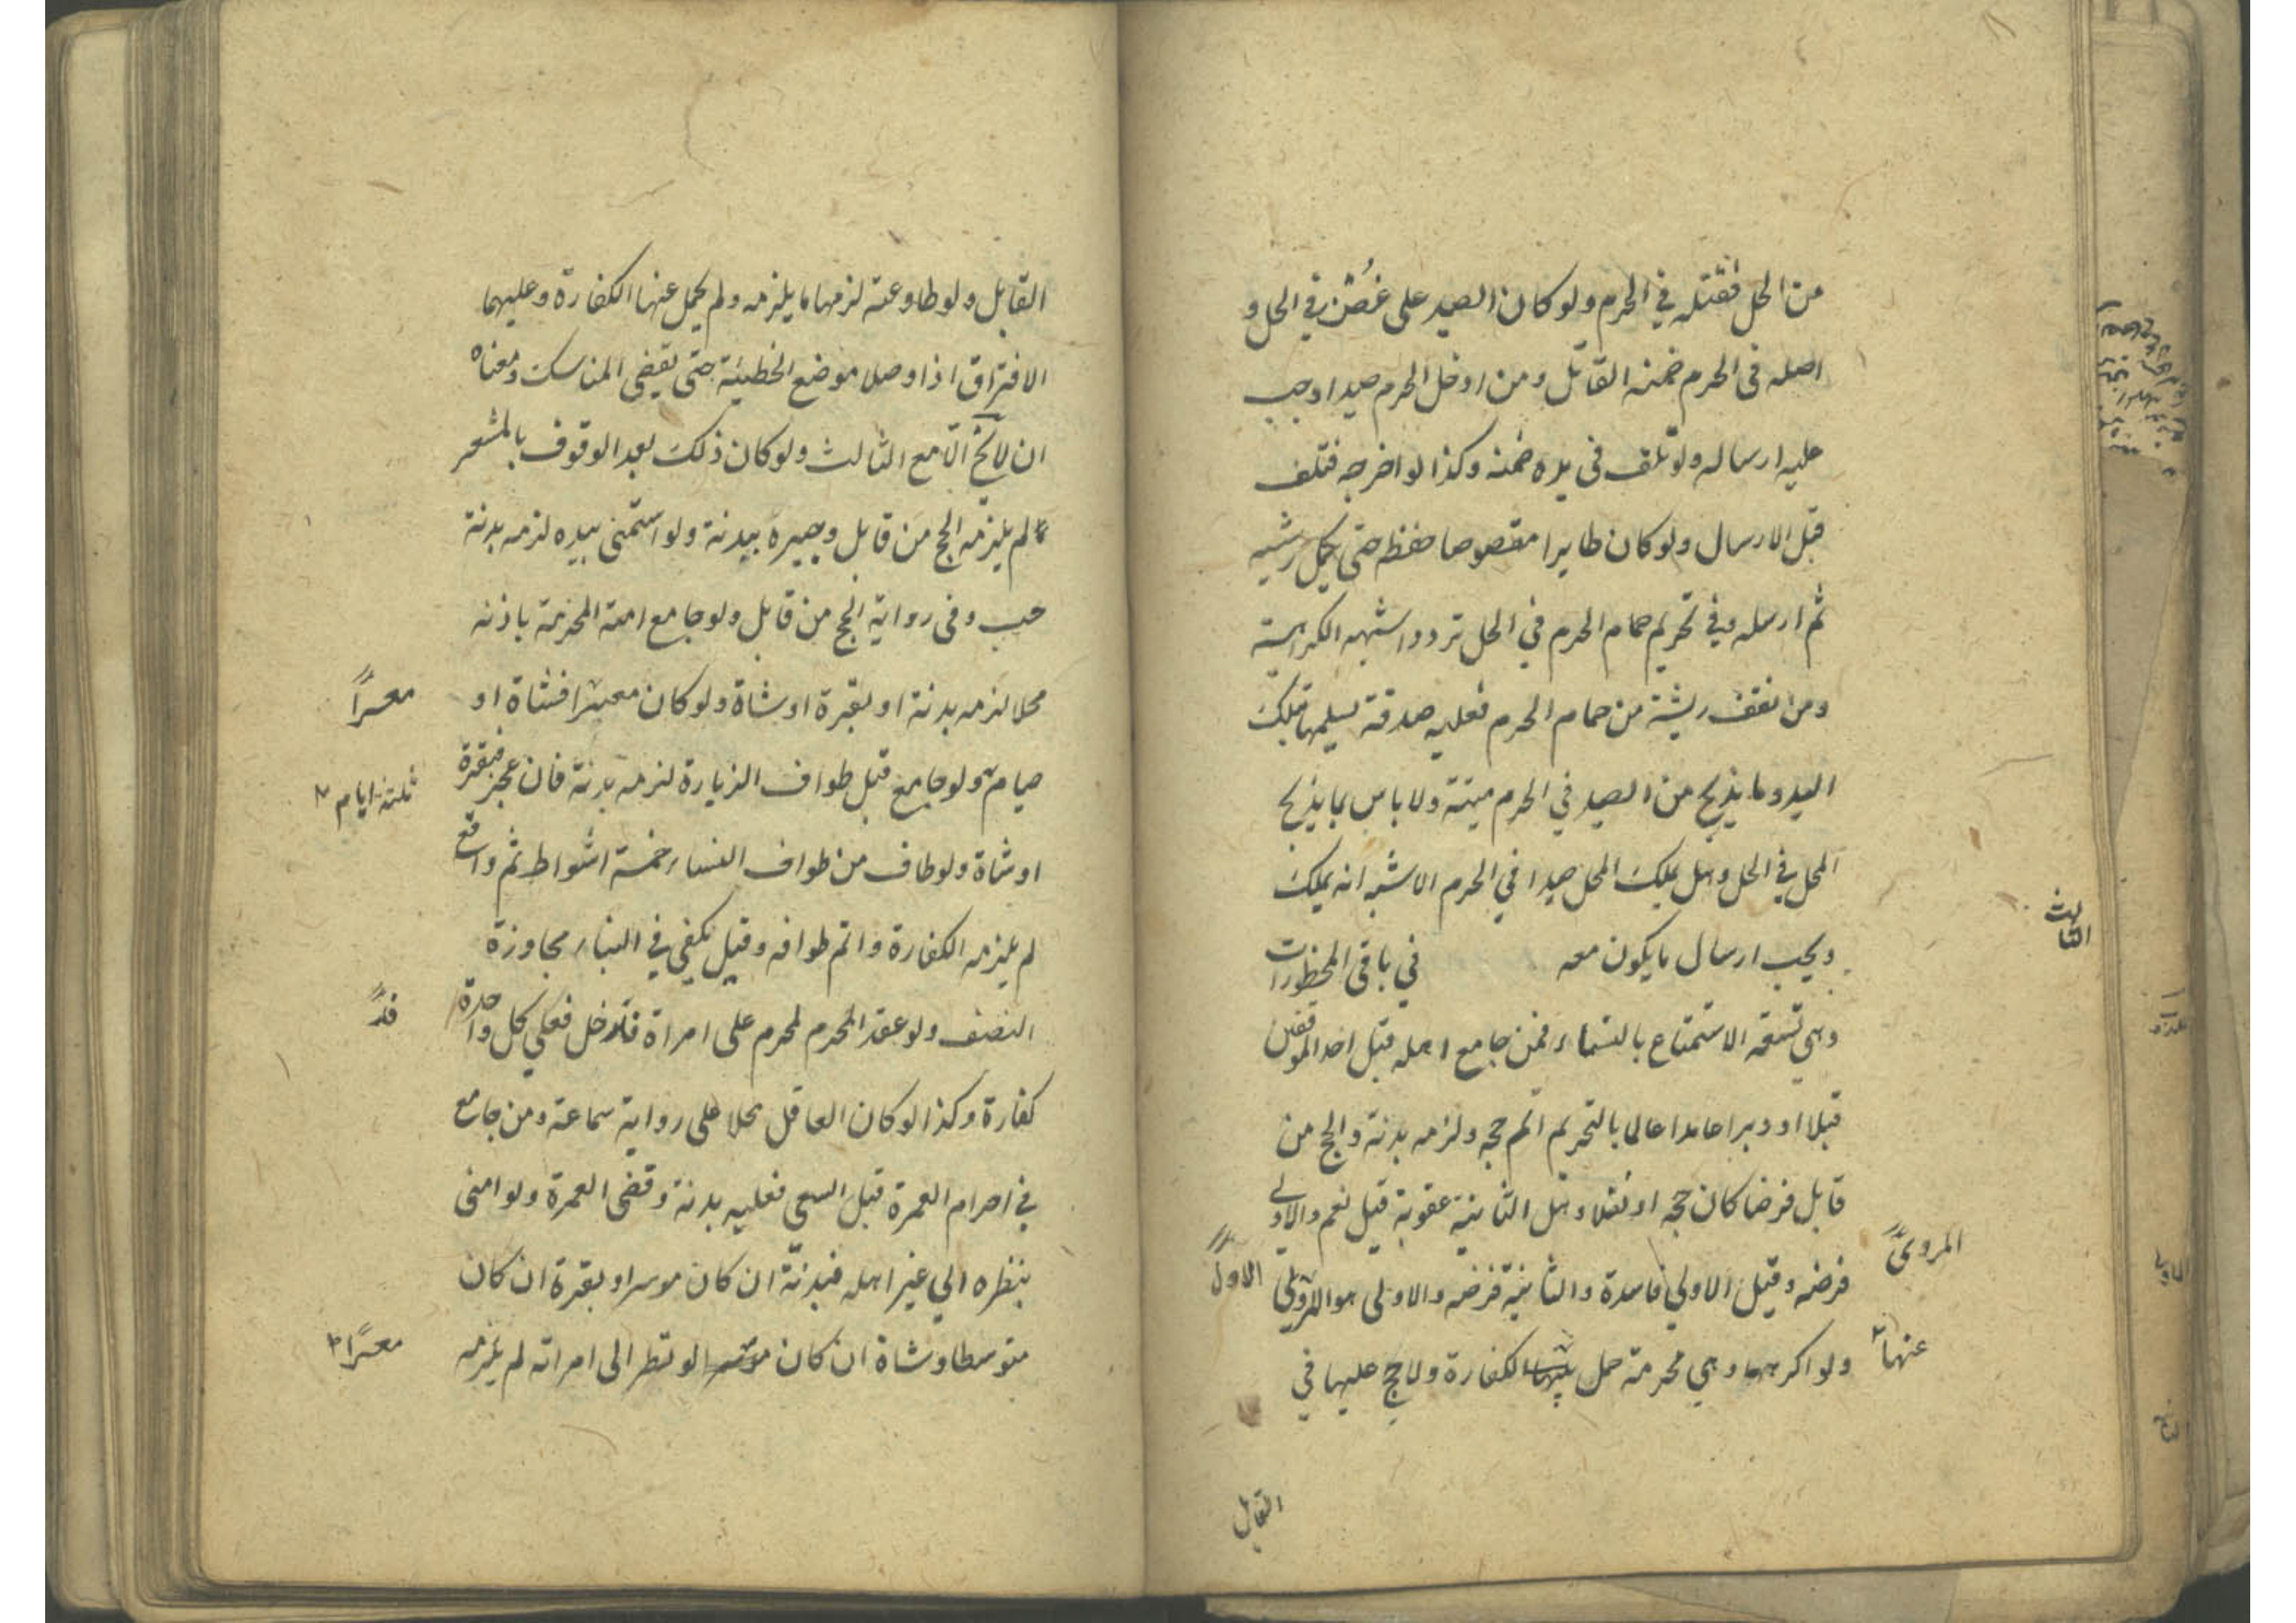 من الحل فقتله في الحرم ولو كان الصيد على غصن في الحل و
اصله في الحرم ضمنه القاتل ومن ادخل الحرم صيدا وجب
عليه ارساله ولو تلف في يده ضمنه وكذا لو اخرجه فتلف
قبل الارسال ولو كان طايرا مقصوصا حفظه حتى يكمل ريشه
ثم ارسله وفي تحريم حمام الحرم في الحل تردد اشبهه الكراهية
ومن نتف ريشة من حمام الحرم فعليه صدقة يسلمها بتلك
اليد وما يذبح من الصيد في الحرم ميتة ولا باس بما يذبح
المحل في الحل وهل يملك المحل صيدا في الحرم الاشبه انه يملك
ويجب ارسال ما يكون معه في باقي المحظورات
الثالث
وهي تسعة الاستمتاع بالنساء فمن جامع اهله قبل احد الموقفين
قبلا او دبرا عامدا عالما بالتحريم اتم حجه ولزمه بدنة والحج من
قابل فرضا كان حجه او نفلا وهل الثانية عقوبة قيل نعم والاولى
فرضه وقيل الاولى فاسدة والثانية فرضه والاولى هو المروي
المروي
الاول
ولو اكرهها وهي محرمة حمل الكفارة ولا حج عليها في
عنها
القابل
القابل ولو طاوعته لزمها ما يلزمه ولم يحمل عنها الكفارة وعليهما
الافتراق اذا وصلا موضع الخطيئة حتى يقضي المناسك ومعناه
ان لا يخلوا الا مع الثالث ولو كان ذلك بعد الوقوف بالمشعر
لم يلزمه الحج من قابل وجبره ببدنة ولو استمنى بيده لزمه بدنة
حسب وفي رواية الحج من قابل ولو جامع امته المحرمة باذنه
محلا لزمه بدنة او بقرة او شاة ولو كان معسرا فشاة او
معسرا
صيام ولو جامع قبل طواف الزيارة لزمه بدنة فان عجز فبقرة
ثلثة ايام
او شاة ولو طاف من طواف النساء خمسة اشواط ثم واقع
لم يلزمه الكفارة واتم طوافه وقيل يكفي في البناء مجاوزة
النصف ولو عقد المحرم لمحرم على امراة فدخل فعلى كل واحدة
كفارة وكذا لو كان العاقد محلا على رواية سماعة ومن جامع
في احرام العمرة قبل السعي فعليه بدنة وقضى العمرة ولو امنى
بنظره الى غير اهله فبدنة ان كان موسرا وبقرة ان كان
متوسطا وشاة ان كان ولو نظر الى امراته لم يلزمه
معسرا